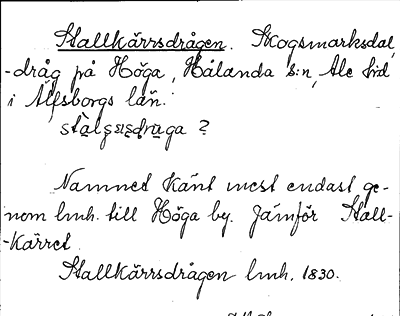 Stallkärrsdrågen. Skogsmarksdal,
-dråg på Höga, Hålanda s:n, Ale hd
i Älfsborgs län.
Namnet känt mest endast ge-
nom lmh. till Höga by. Jämför Stall-
-kärret.
Stallkärrsdrågen lmh. 1830.